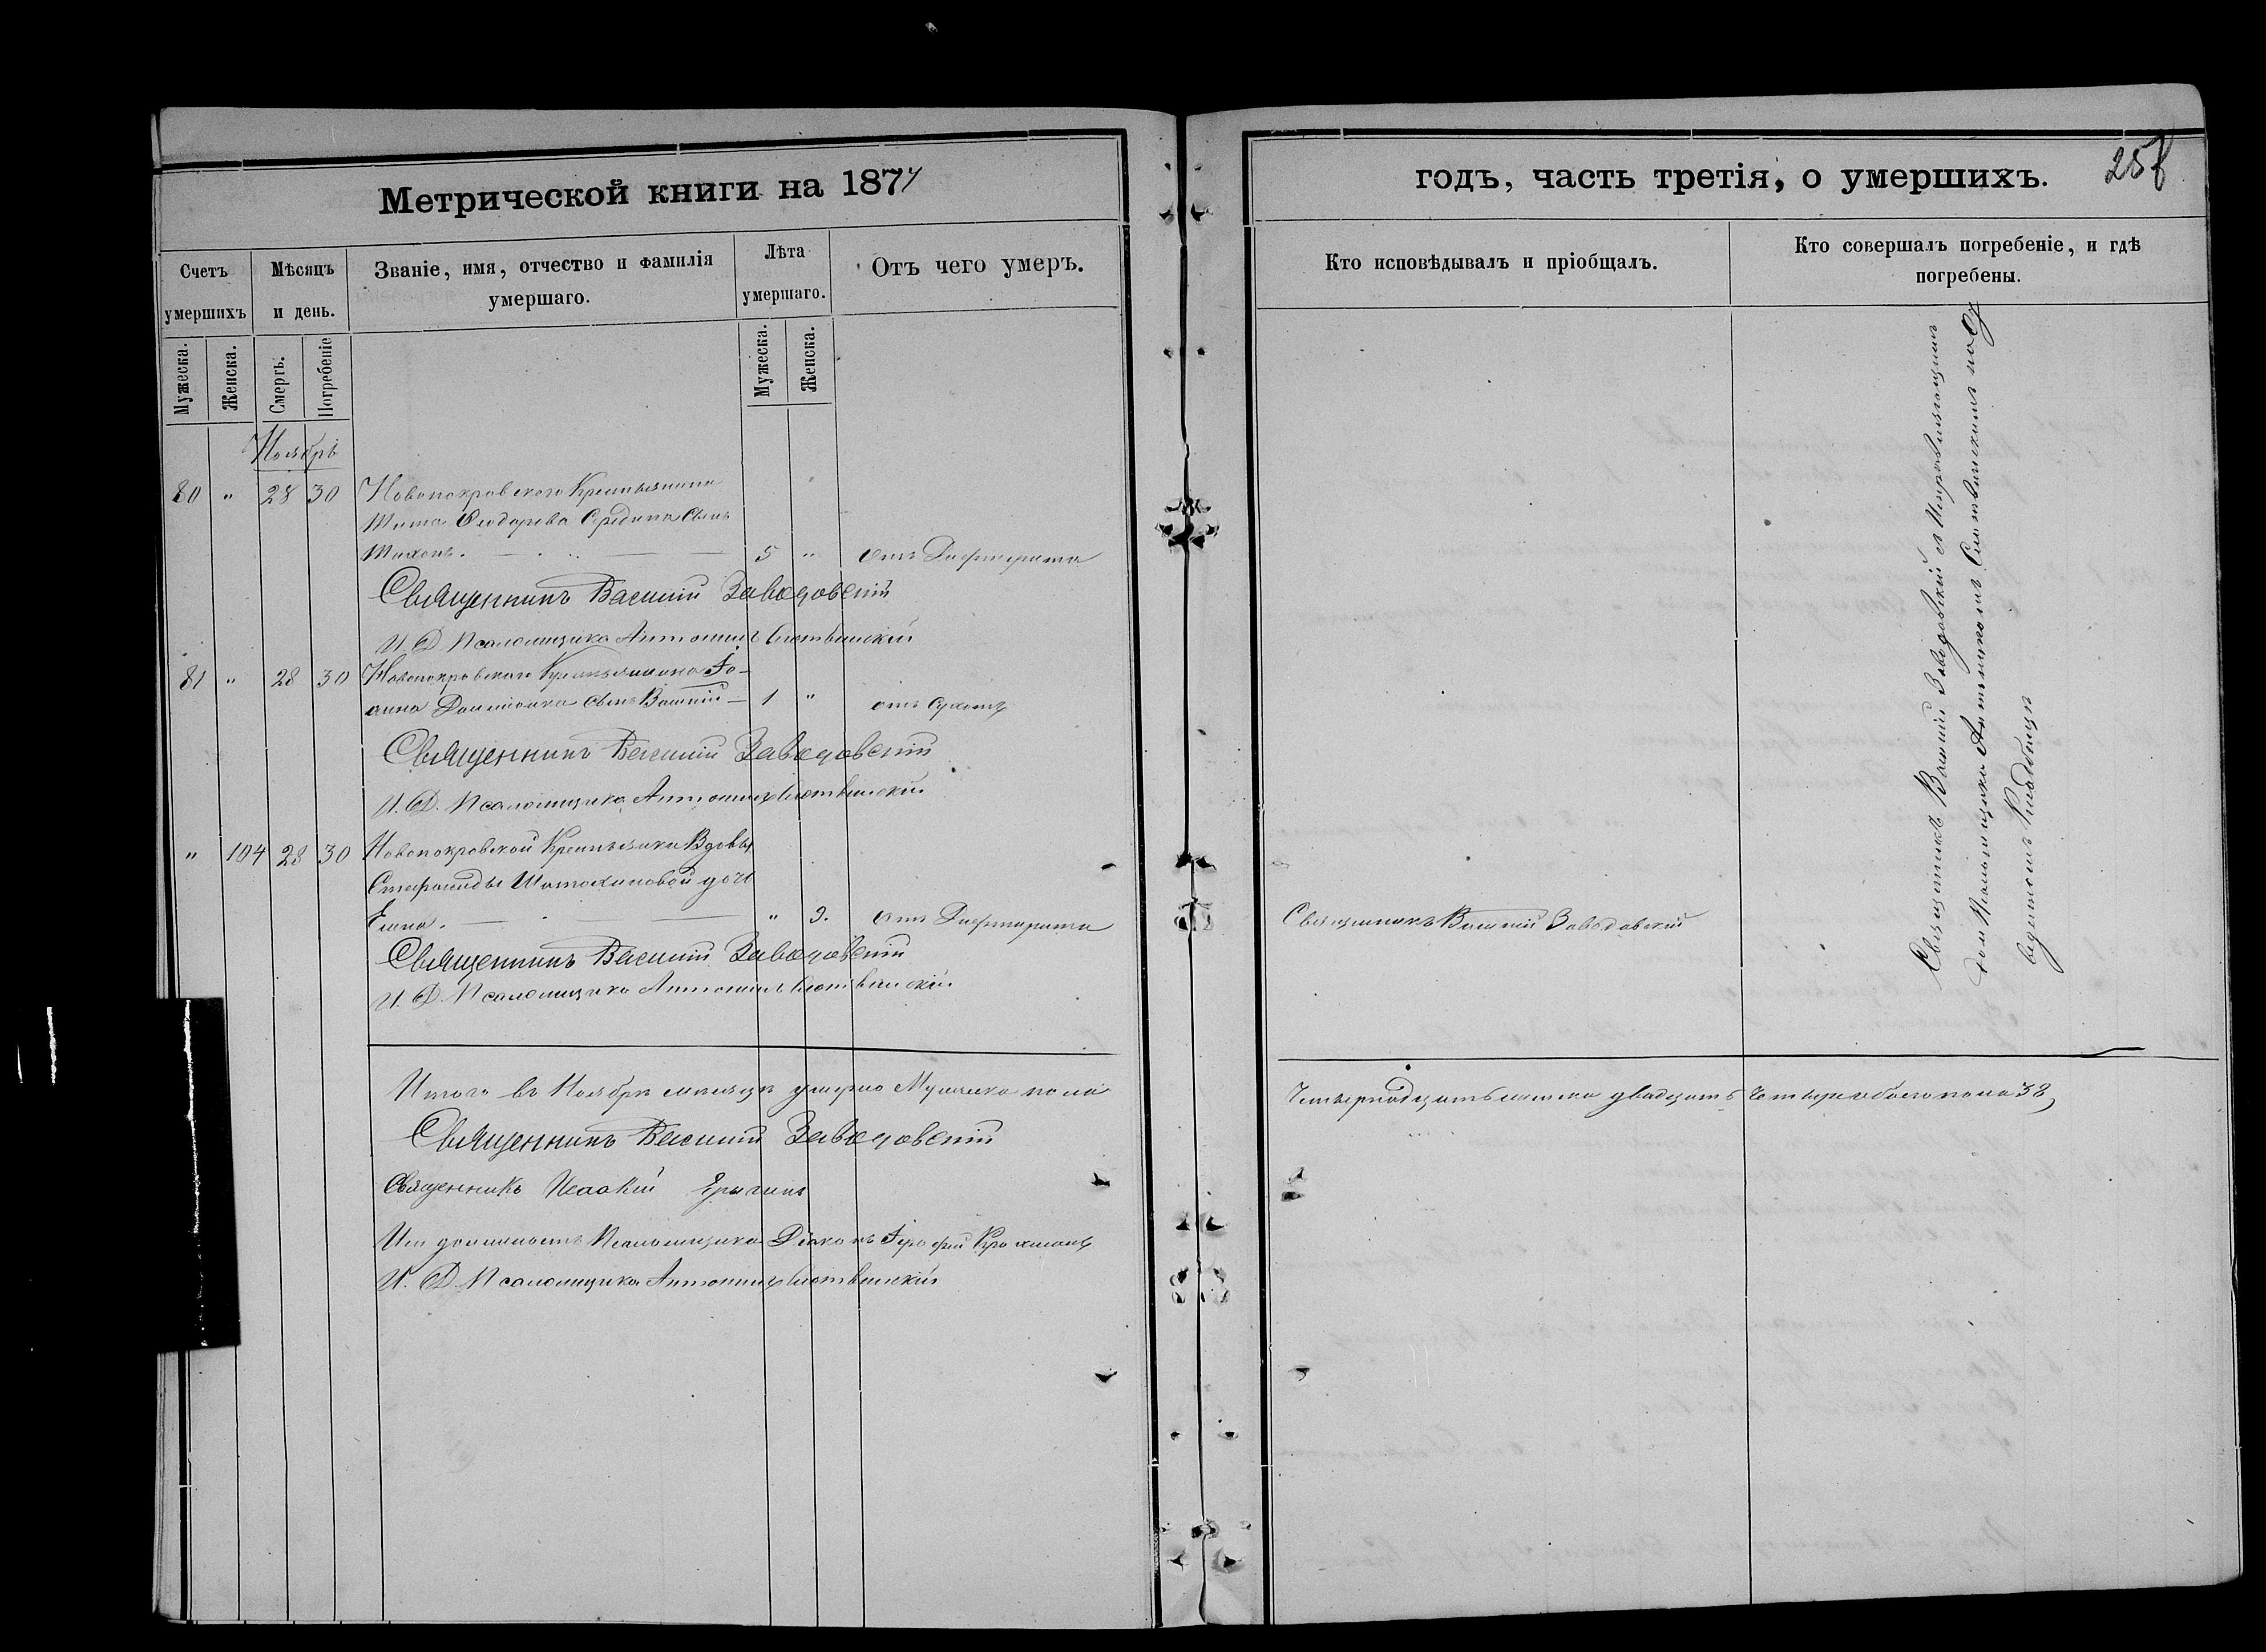 Метрической книги на 1877
годъ, часть третія, о умершихъ.
Счетъ умершихъ
Мѣсяцъ и день.
Званіе, имя, отчество и фамилія умершаго.
Лѣта умершаго.
Отъ чего умеръ.
Кто исповѣдывалъ и пріобщалъ.
Кто совершалъ погребеніе, и гдѣ погребены.
Мужеска.
Женска.
Смерть.
Погребеніе
Мужеска.
Женска.
Ноябрь
80 " 28 30 Новопокровского Крестьянина
Тита Ѳеодорова Середина сынъ
Тихонъ. 5 " отъ Дифтерита
Священникъ Василій Заводовскій
И. Д. Псаломщика Антоній
81 " 28 30 Новопокровского Крестьянина Іо-
анна сынъ Василій 1 " отъ сухотъ
Священникъ Василій Заводовскій
И. Д. Псаломщика Антоній
" 104 28 30 Новопокровской Крестьянки Вдовы
Стефаниды Шатохиновой дочь
Елена. " 9. отъ Дифтерита
Священникъ Василій Заводовскій
Священникъ Василій Заводовскій
И. Д. Псаломщика Антоній
Священникъ Василій Заводовскій съ
Псаломщика
Кладбищѣ
Итого въ Ноябрѣ мѣсяцѣ умерло Мужеска пола
Четырнадцать женска двадцать четыре обоего пола 38,
Священникъ Василій Заводовскій
Священникъ Исаакій
Ис. должность Псаломщика Діаконъ Іерофей
И. Д. Псаломщика Антоній